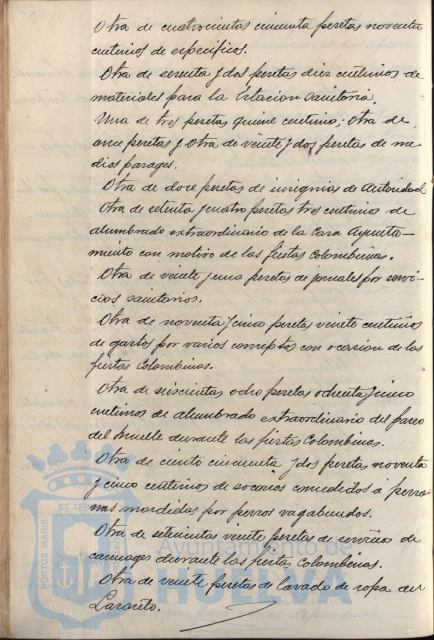 Otra de cuatrocientas cincuenta pesetas noventa
centimos de especificos.
Otra de sesenta y dos pesetas diez centimos de
materiales para la Estacion Sanitaria.
Una de tres pesetas quince centimos; otra de
once pesetas y otra de veinte y dos pesetas de me
dios pasages.
Otra de doce pesetas de insignias de Autoridad
Otra de setenta y cuatro pesetas tres centimos de
alumbrado extraordinario de la Casa Ayunta-
miento con motivo de las fiestas Colombinas.
Otra de veinte y una pesetas de jornales por servi-
cios sanitarios.
Otra de noventa y cinco pesetas veinte centimos
de gastos por varios conceptos con ocasion de las
fiestas Colombinas.
Otra de seiscientas ocho pesetas ochenta y cinco
centimos de alumbrado extraordinario del paseo
del Muelle durante las fiestas Colombinas.
Otra de ciento cincuenta y dos pesetas noventa
y cinco centimos de socorros concedidos á perso
nas mordidas por perros vagabundos.
Otra de setecientas veinte pesetas de servicio de
carruages durante las fiestas Colombinas.
Otra de veinte pesetas de lavado de ropa del
Lazareto.
PORTUS MARIS ET TERRÆ
Ayuntamiento de
HUELVA